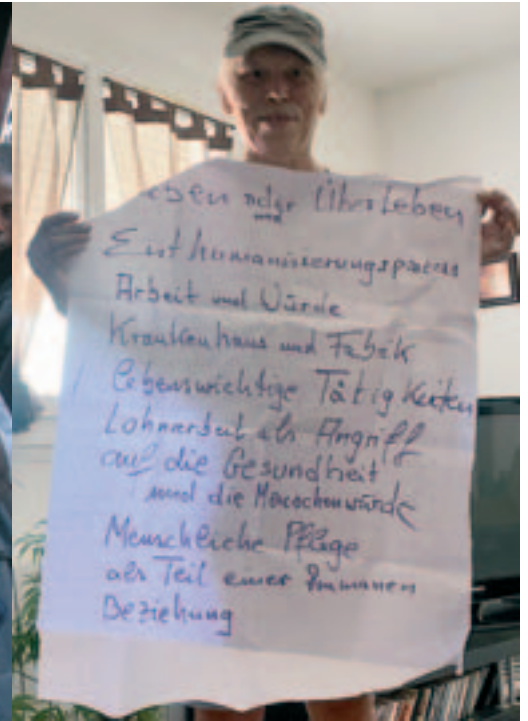 Leben oder Überleben
Enthumanisierungsprozess
Arbeit und Würde
Krankenhaus und Fabrik
lebenswichtige Tätigkeiten
Lohnarbeit als Angriff
auf die Gesundheit
und die Menschenwürde
Menschliche Pflege
als Teil einer humanen
Beziehung